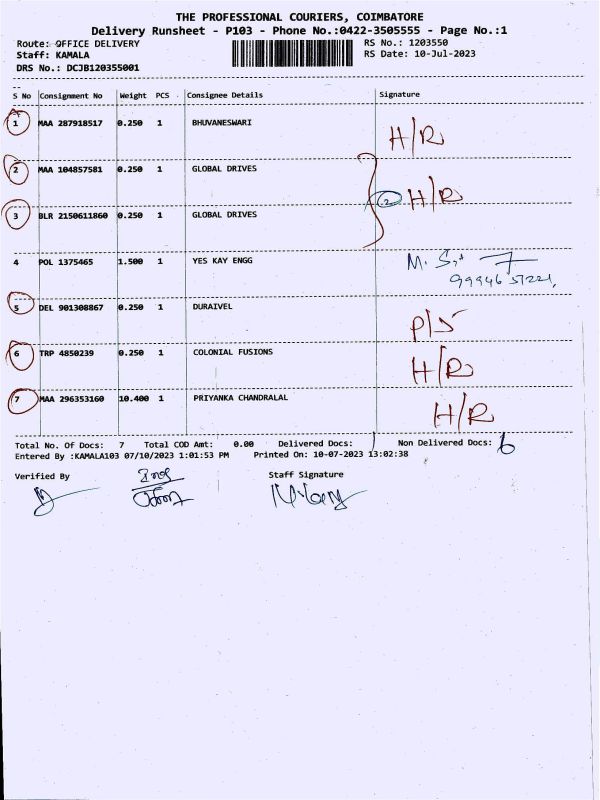 THE PROFESSIONAL COURIERS, COIMBATORE
Delivery Runsheet - P103 - Phone No.:0422-3505555 - Page No.:1
Route: OFFICE DELIVERY RS No.: 1203550
Staff: KAMALA RS Date: 10-Jul-2023
DRS No.: DCJB120355001
S No Consignment No Weight PCS Consignee Details Signature
1 MAA 287918517 0.250 1 BHUVANESWARI H/R
2 MAA 104857581 0.250 1 GLOBAL DRIVES
2 H/R
3 BLR 2150611860 0.250 1 GLOBAL DRIVES
4 POL 1375465 1.500 1 YES KAY ENGG M.
5 DEL 901308867 0.250 1 DURAIVEL P/S
6 TRP 4850239 0.250 1 COLONIAL FUSIONS H/R
7 MAA 296353160 10.400 1 PRIYANKA CHANDRALAL H/R
Total No. Of Docs: 7 Total COD Amt: 0.00 Delivered Docs: 1 Non Delivered Docs: 6
Entered By :KAMALA103 07/10/2023 1:01:53 PM Printed On: 10-07-2023 13:02:38
Verified By Staff Signature